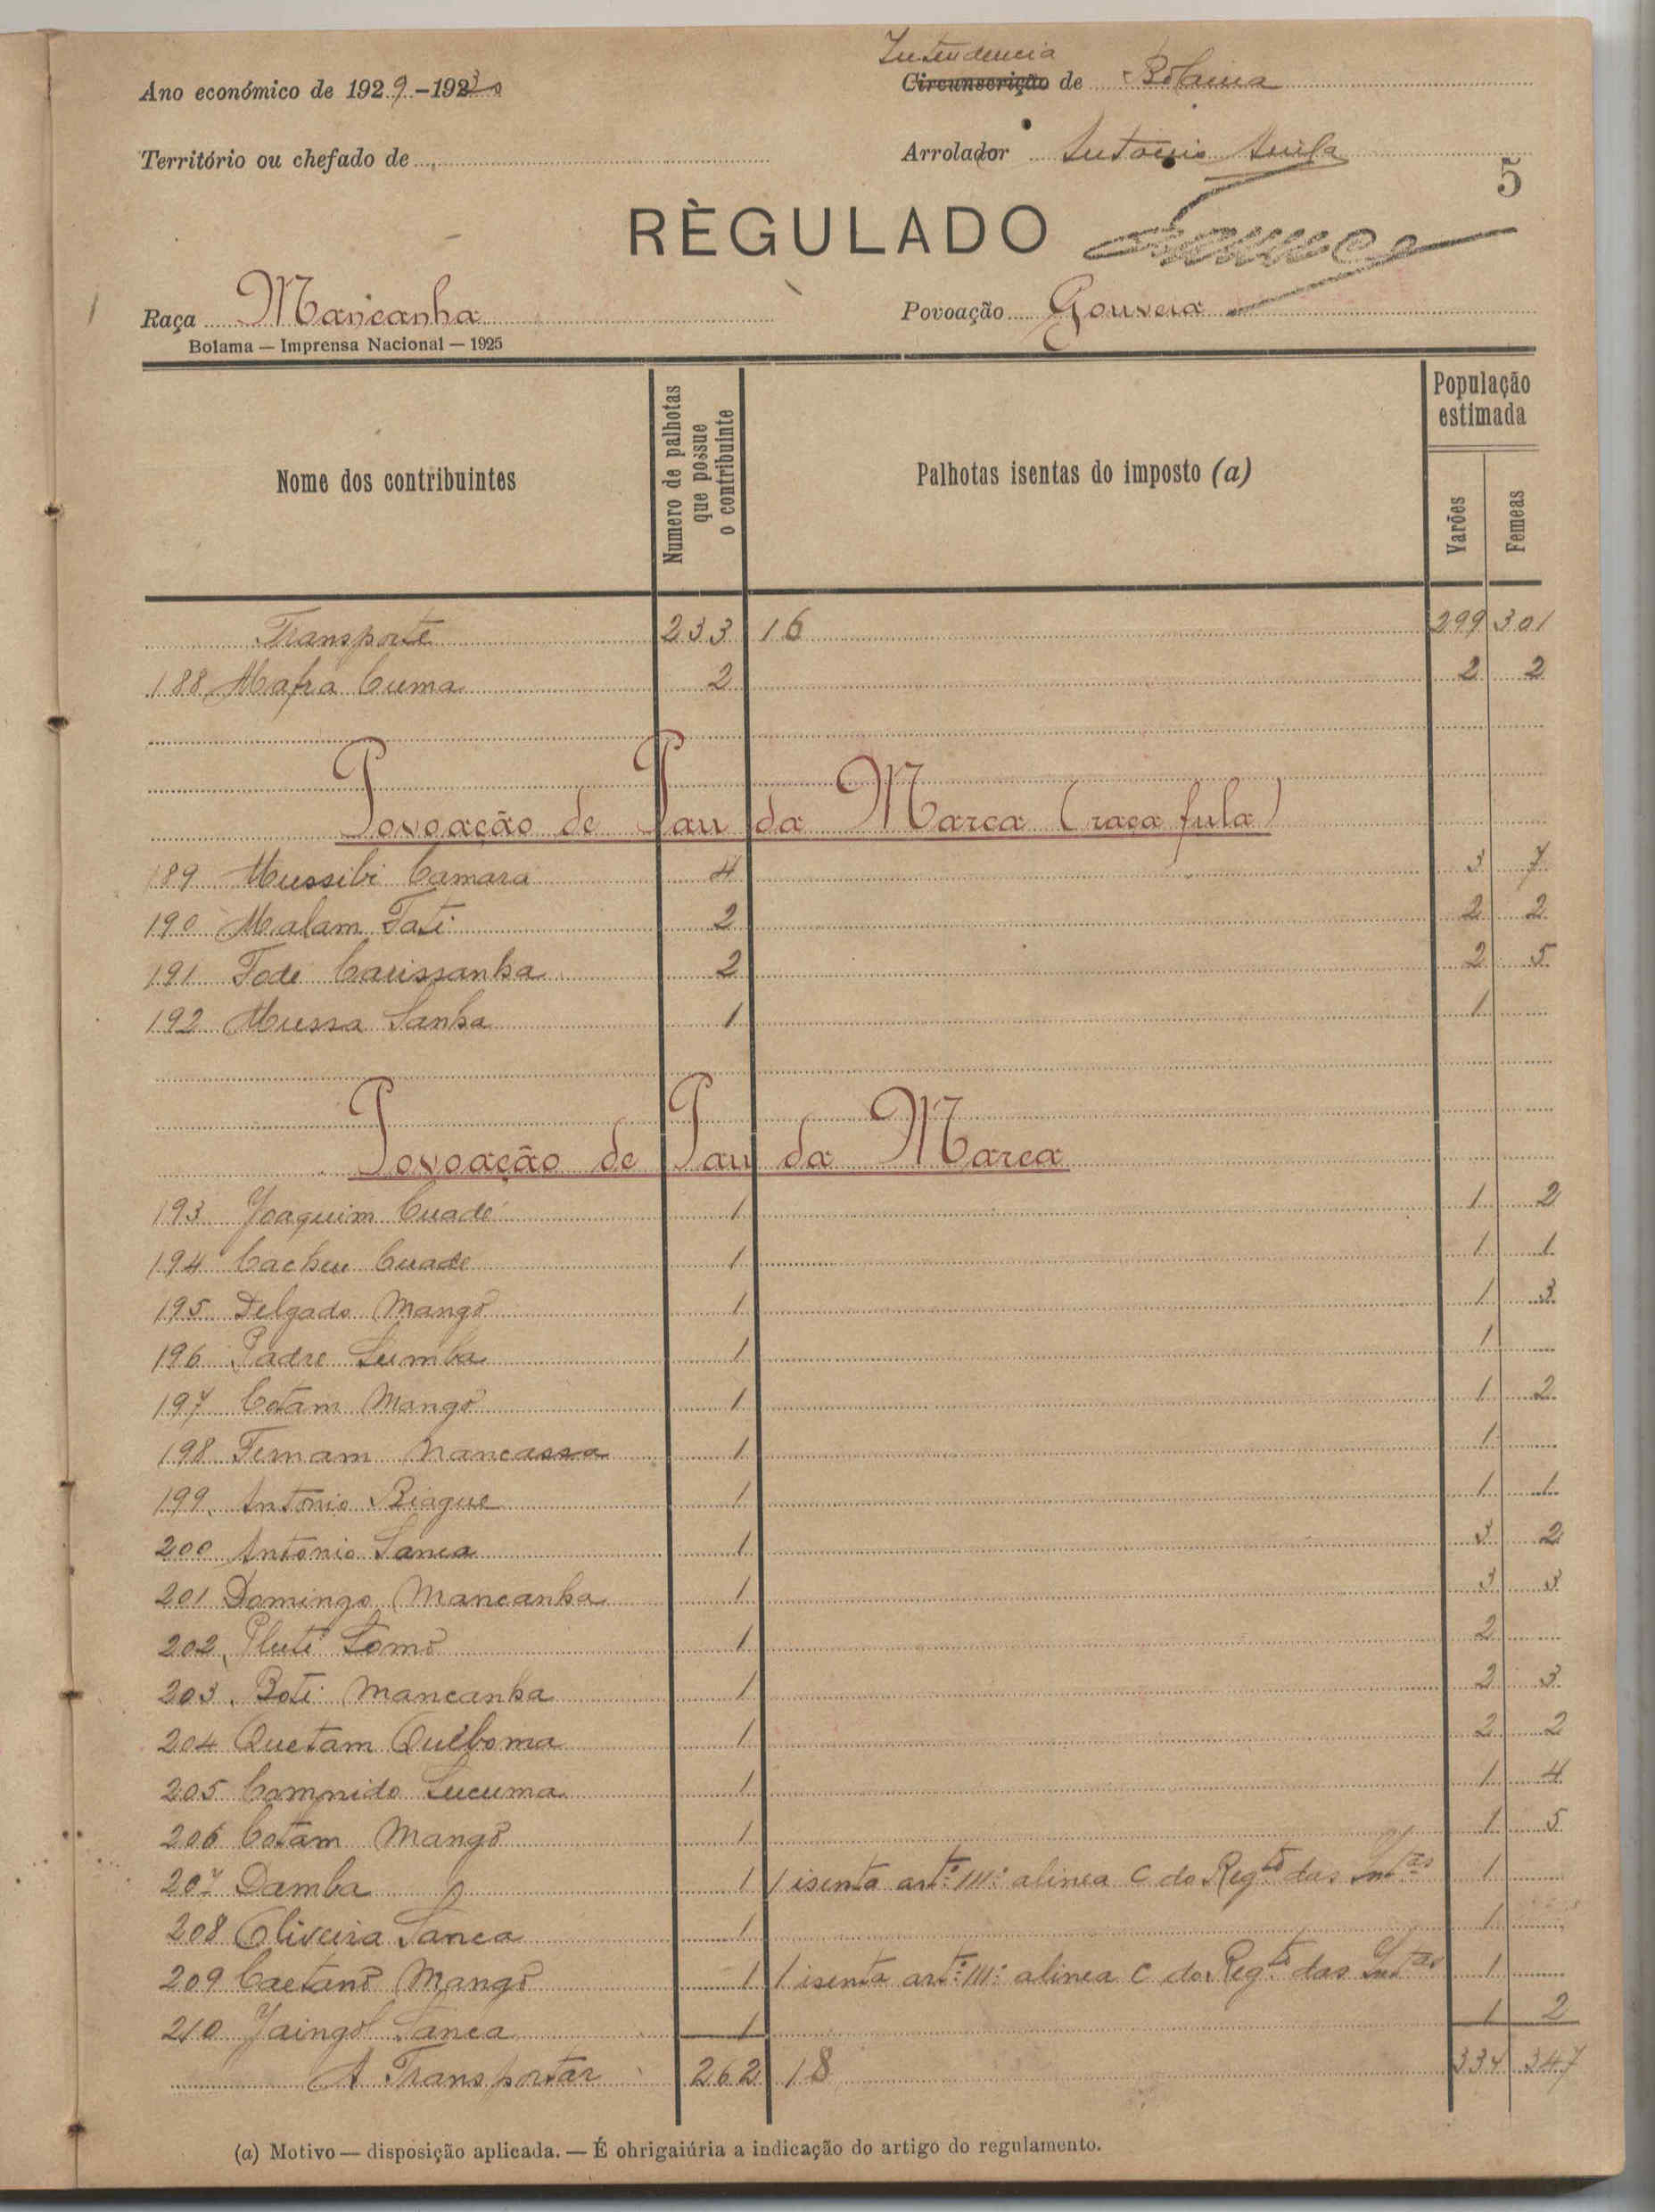 Intendencia
Ano económico de 1929-1930
Circunscrição de Bolama
Território ou chefado de
Arrolador Antonio
5
RÈGULADO
Raça Mancanha
Povoação Gouveia
Bolama — Imprensa Nacional — 1925
Nome dos contribuintes
Numero de palhotas que possue o contribuinte
Palhotas isentas do imposto (a)
População estimada
Varões
Femeas
Transporte 233 16 299 301
188 Mafra Cuma 2 2 2
Povoação de Pau da Marca (raça fula)
189 Mussibi Camara 4 3 7
190 Malam Fati 2 2 2
191 Fode Caussanha 2 2 5
192 Mussa Sanha 1 1
Povoação de Pau da Marca
193 Joaquim Cuadé 1 1 2
194 Cacheu Cuade 1 1 1
195 Delgado Mangõ 1 1 3
196 Padre Lumba 1 1
197 Cotam Mangõ 1 1 2
198 Fernam Nancassa 1 1
199 Antonio Biague 1 1 1
200 Antonio Sanca 1 3 2
201 Domingo Mancanha 1 3 3
202 Pluti Lomõ 1 2
203 Boti Mancanha 1 2 3
204 Quetam Quiboma 1 2 2
205 Comprido Lucuma 1 1 4
206 Cotam Mangõ 1 1 5
207 Damba 1 1 isenta artº 111º alinea C do Regtº das Intas 1
208 Oliveira Sanca 1 1
209 Caetanõ Mangõ 1 1 isenta artº 111º alinea C do Regtº das Intas 1
210 Jaingol Sanca 1 1 2
A Transportar 262 18 334 347
(a) Motivo — disposição aplicada. — É ohrigaiúria a indicação do artigo do regulamento.